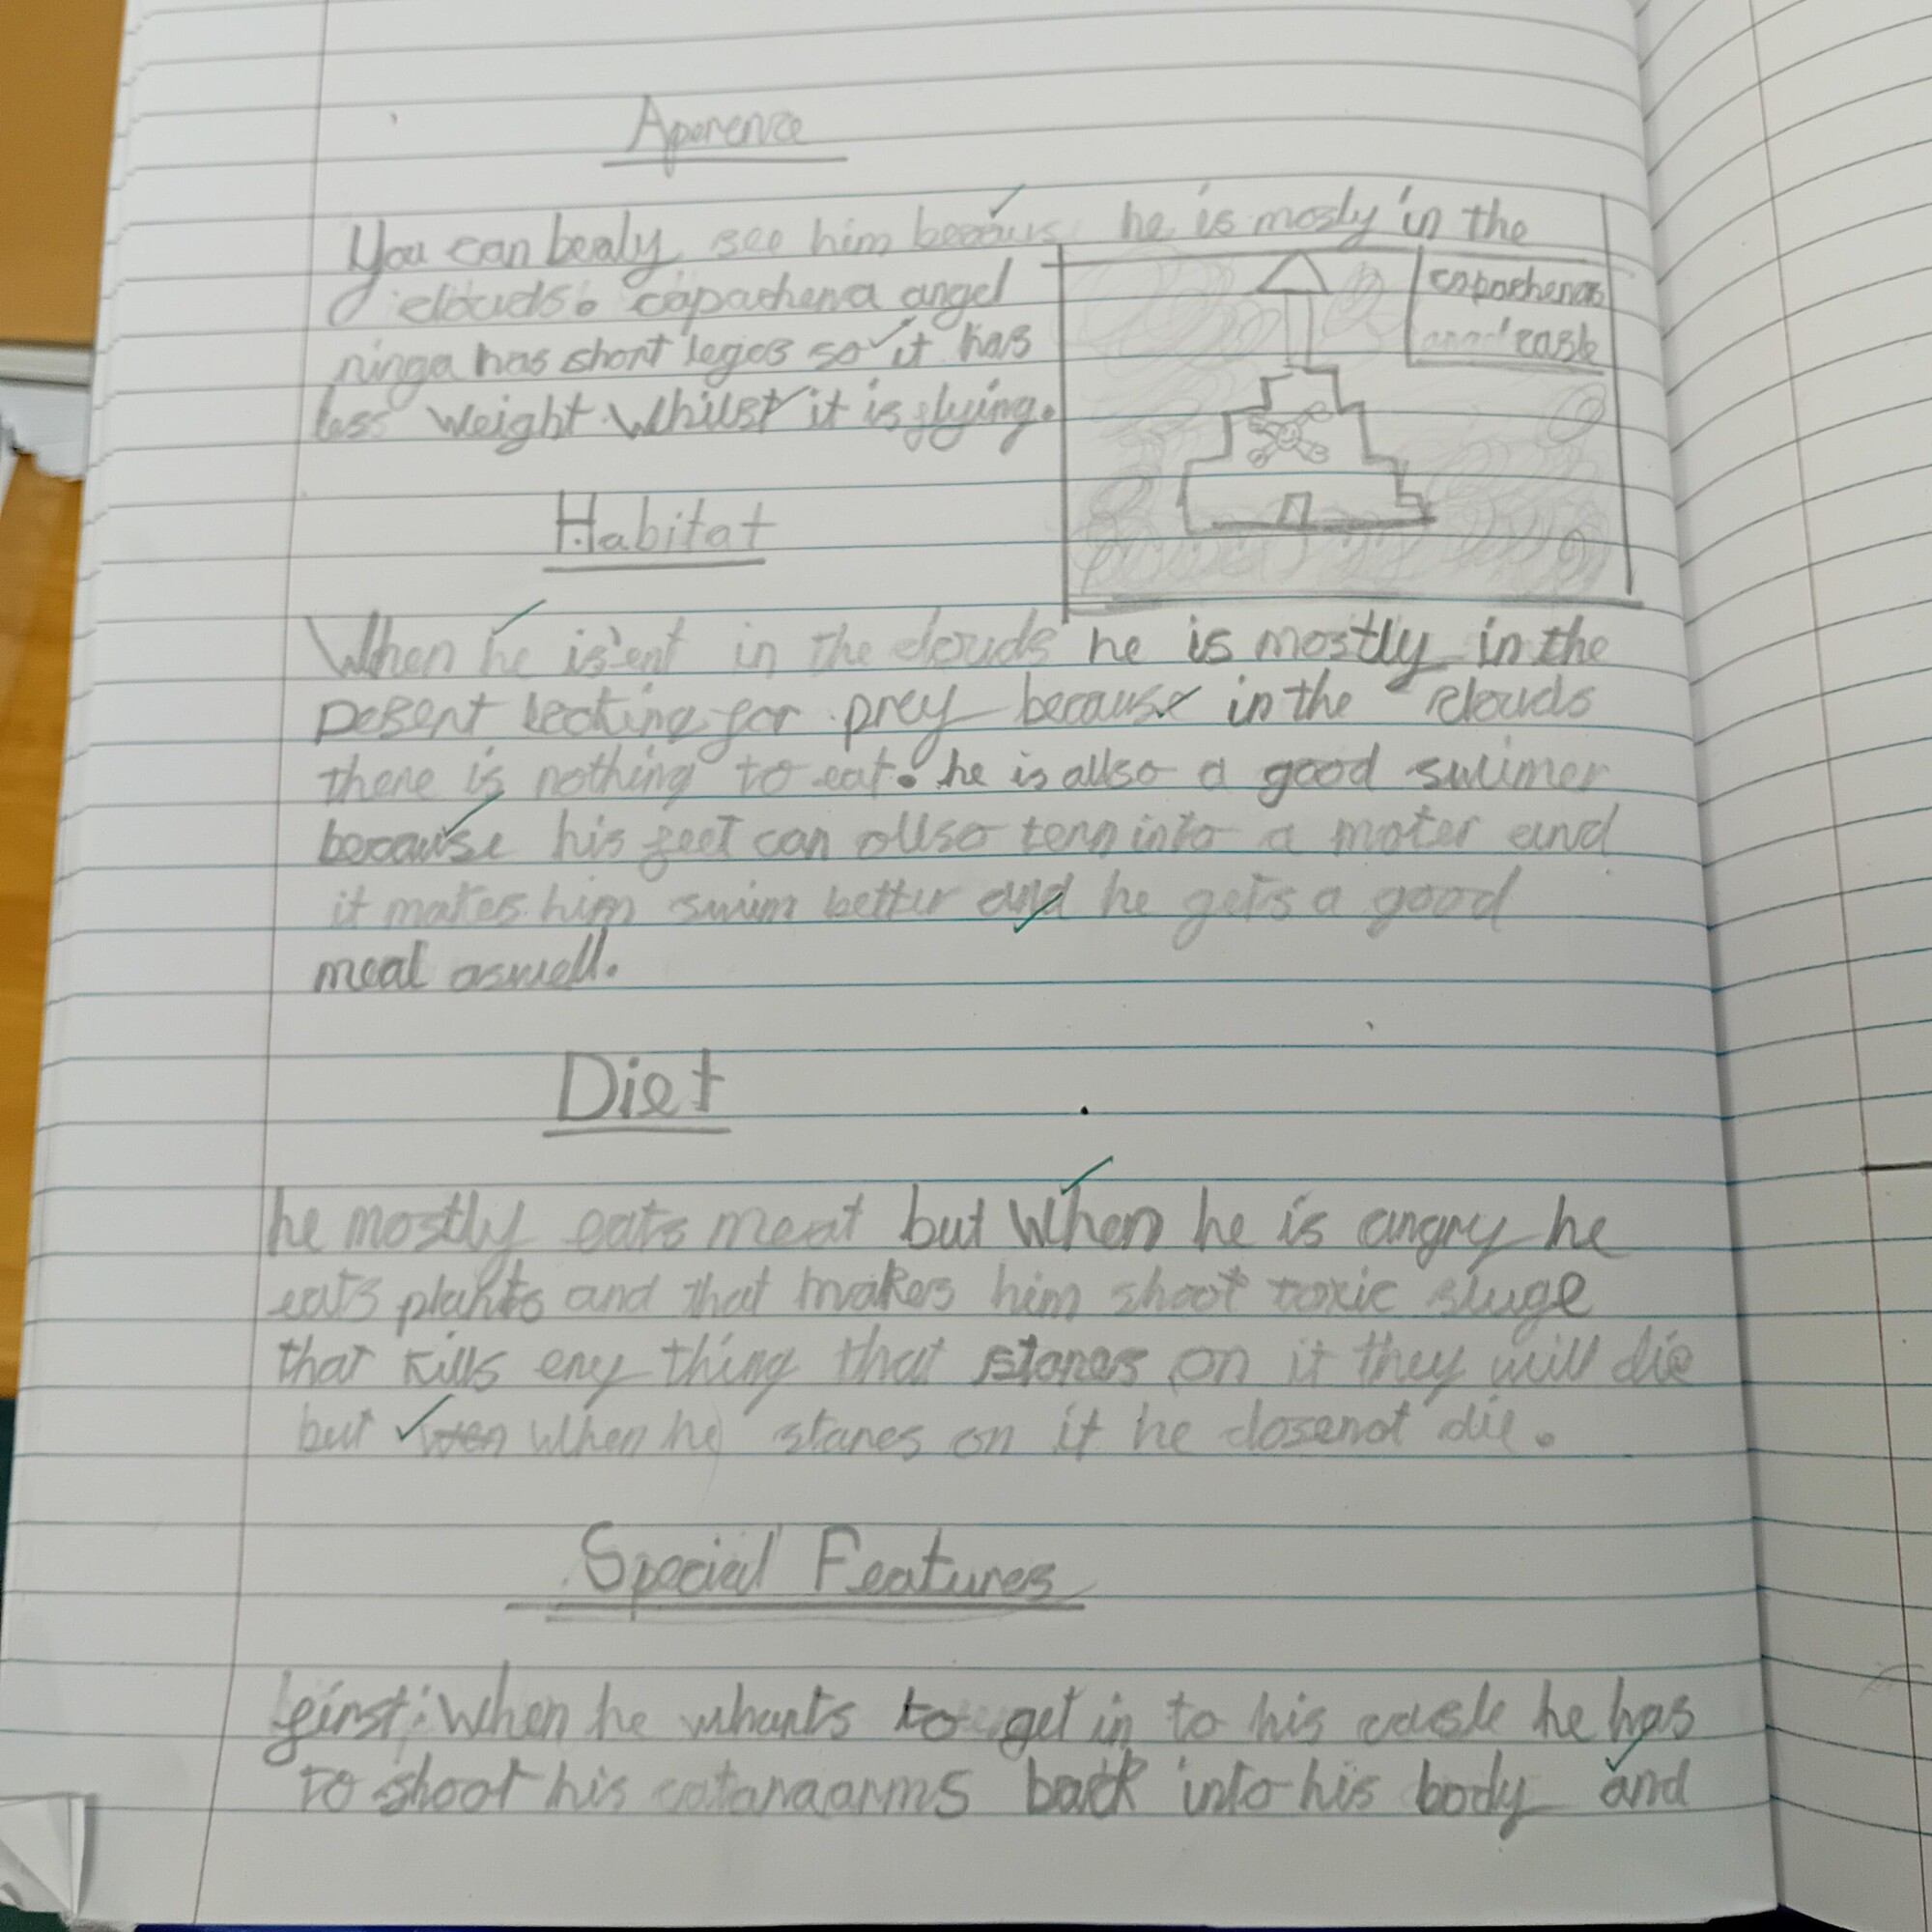 Aperence
You can bealy see him becaus he is mosly in the
clouds. capachena angel
ninga has short leges so it has
less weight whilst it is flying.
capachenas
castle
Habitat
When he is'ent in the clouds he is mostly in the
Desert looking for prey because in the clouds
there is nothing to eat. he is allso a good swimer
because his feet can allso tern into a moter and
it makes him swim better and he gets a good
meal aswell.
Diet
he mostly eats meat but when he is angry he
eats plants and that makes him shoot toxic sluge
that kills eny thing that stanes on it they will die
but wen when he stanes on it he dosenot die.
Special Features
first: When he whants to get in to his casle he has
to shoot his catanaarms back into his body and